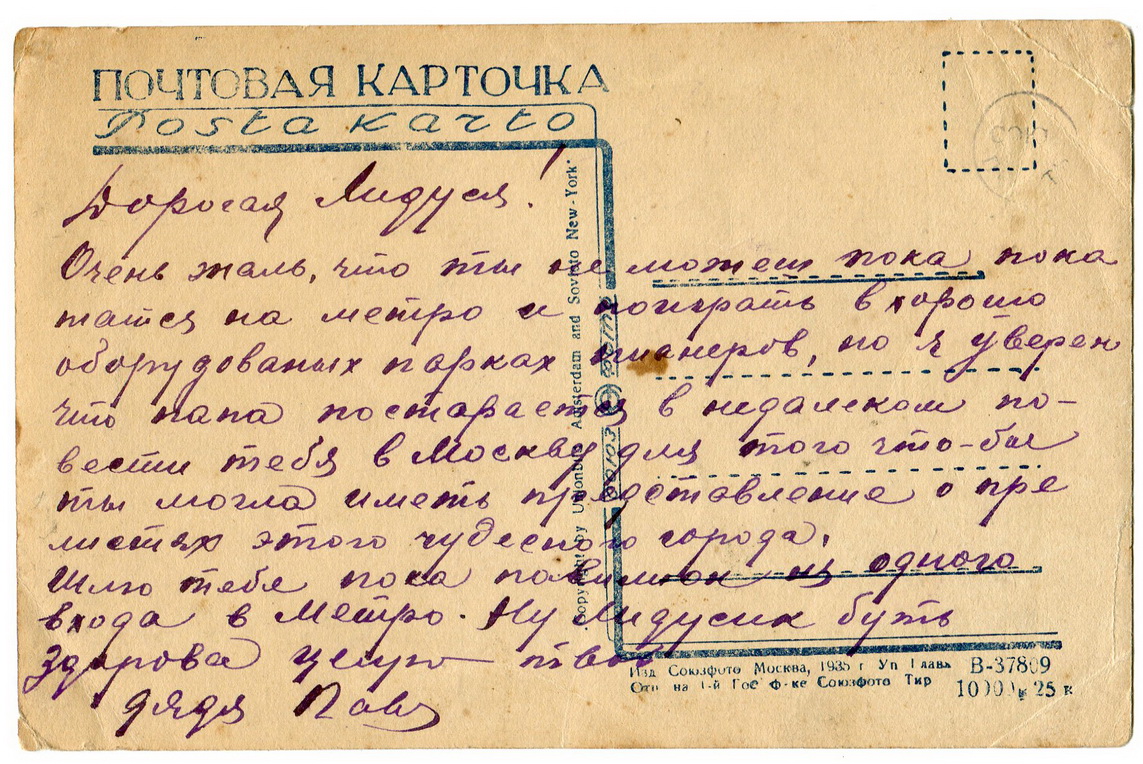 ПОЧТОВАЯ КАРТОЧКА
Posta karto
Дорогая Лидуся!
Очень жаль, что ты не можеш пока пока
таться на метро и поиграть в хорошо
оборудованых парках пионеров, но я уверен
что папа постарается в недалеком по-
вести тебя в Москву для того что-бы
ты могла иметь представление о пре
лестях этого чудесного города.
Шлю тебе пока павильон из одного
входа в Метро. Ну Лидусик буть
здорова целую твой
дядя Павл
Copyright by Unionbild Amsterdam and Sovfoto New-York
Изд Союзфото Москва, 1935 г Уп Главл В-37809
Отп на 1-й Гос ф-ке Союзфото Тир 25 к